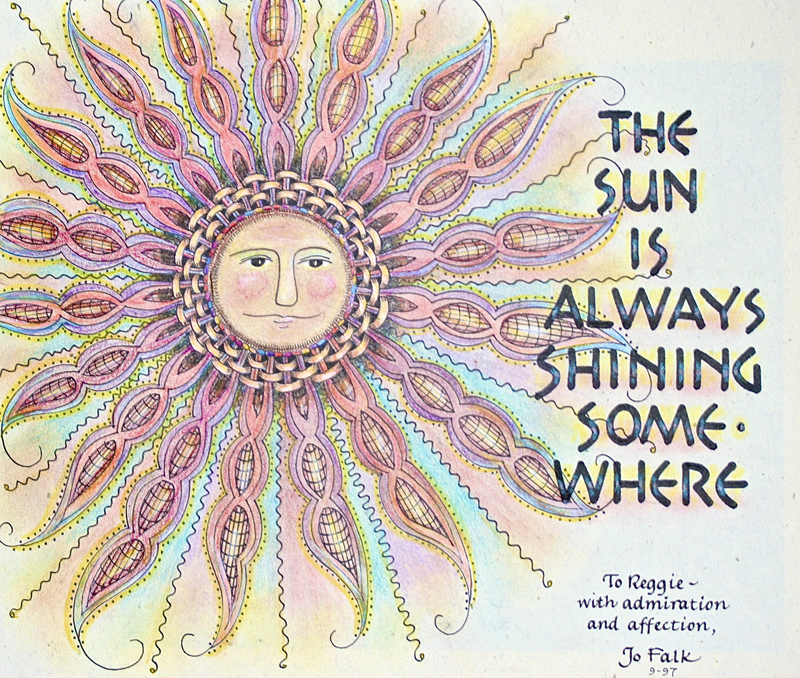 THE
SUN
IS
ALWAYS
SHINING
SOME·
WHERE
To Reggie ~
with admiration
and affection,
Jo Falk
9-97